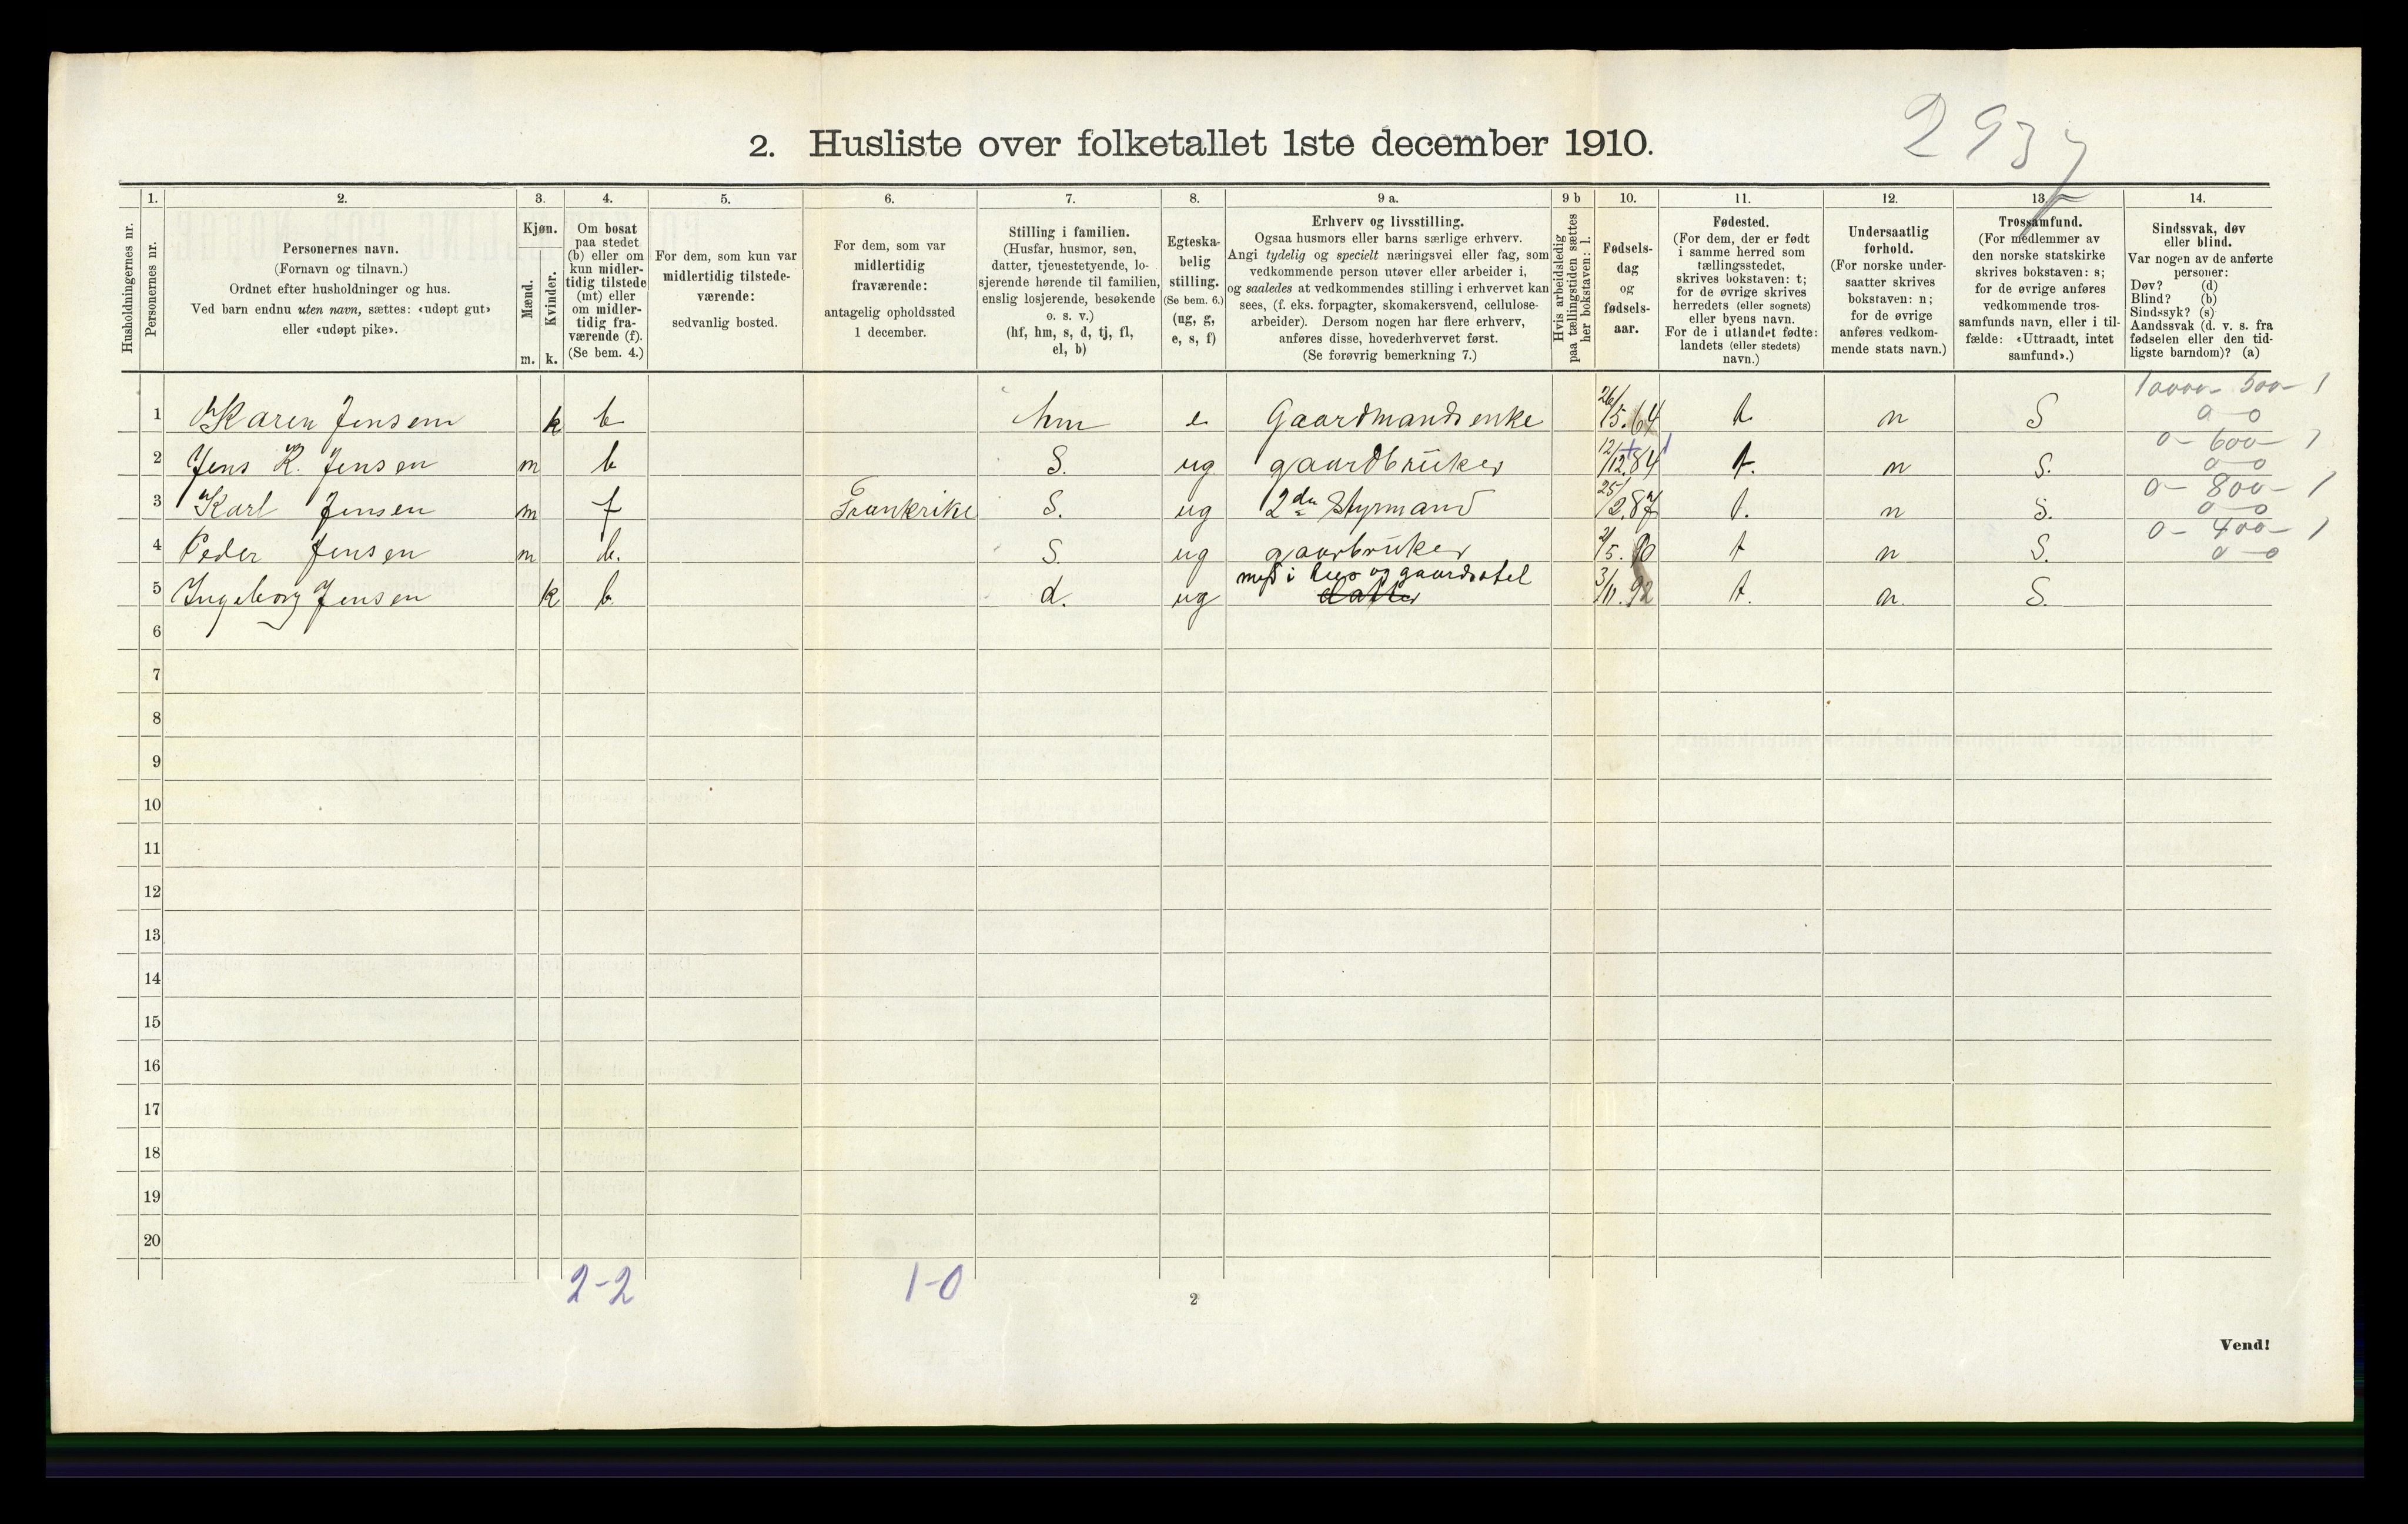 2937
2. Husliste over folketallet 1ste december 1910.
1. 2. 3. 4. 5. 6. 7. 8. 9 a. 9 b 10. 11. 12. 13. 14.
Husholdningernes nr.
Personernes nr.
Personernes navn.
(Fornavn og tilnavn.)
Ordnet efter husholdninger og hus.
Ved barn endnu uten navn, sættes: «udøpt gut»
eller «udøpt pike».
Kjøn.
Mænd.
Kvinder.
m. k.
Om bosat
paa stedet
(b) eller om
kun midler-
tidig tilstede
(mt) eller
om midler-
tidig fra-
værende (f).
(Se bem. 4.)
For dem, som kun var
midlertidig tilstede-
værende:
sedvanlig bosted.
For dem, som var
midlertidig
fraværende:
antagelig opholdssted
1 december.
Stilling i familien.
(Husfar, husmor, søn,
datter, tjenestetyende, lo-
sjerende hørende til familien,
enslig losjerende, besøkende
o. s. v.)
(hf, hm, s, d, tj, fl,
el, b)
Egteska-
belig
stilling.
(Se bem. 6.)
(ug, g,
e, s, f)
Erhverv og livsstilling.
Ogsaa husmors eller barns særlige erhverv.
Angi tydelig og specielt næringsvei eller fag, som
vedkommende person utøver eller arbeider i,
og saaledes at vedkommendes stilling i erhvervet kan
sees, (f. eks. forpagter, skomakersvend, cellulose-
arbeider). Dersom nogen har flere erhverv,
anføres disse, hovederhvervet først.
(Se forøvrig bemerkning 7.)
Hvis arbeidsledig
paa tællingstiden sættes
her bokstaven: l.
Fødsels-
dag
og
fødsels-
aar.
Fødested.
(For dem, der er født
i samme herred som
tællingsstedet,
skrives bokstaven: t;
for de øvrige skrives
herredets (eller sognets)
eller byens navn.
For de i utlandet fødte:
landets (eller stedets)
navn.)
Undersaatlig
forhold.
(For norske under-
saatter skrives
bokstaven: n;
for de øvrige
anføres vedkom-
mende stats navn.)
Trossamfund.
(For medlemmer av
den norske statskirke
skrives bokstaven: s;
for de øvrige anføres
vedkommende tros-
samfunds navn, eller i til-
fælde: «Uttraadt, intet
samfund».)
Sindssvak, døv
eller blind.
Var nogen av de anførte
personer:
Døv? (d)
Blind? (b)
Sindssyk? (s)
Aandssvak (d. v. s. fra
fødselen eller den tid-
ligste barndom)? (a)
10000 - 500 - 1
1 Karen Jensen k b hm e Gaardmandsenke 26/5.64 t n S 0 - 0
0 - 600 - 1
2 Jens K. Jensen m b S. ug gaardbruker 12/12.84 t. n S. 0 - 0
0 - 800 - 1
3 Karl Jensen m f Frankrike S. ug 2den Styrmand 25/2.87 t. n S. 0 - 0
0 - 400 - 1
4 Peder Jensen m b. S. ug gaarbruker 2/5.90 t n S. 0 - 0
med i hus og gaardsstel
5 Ingeborg Jensen k b d. ug datter 3/11.92 t. n. S.
6
7
8
9
10
11
12
13
14
15
16
17
18
19
20
2-2 1-0
2
Vend!